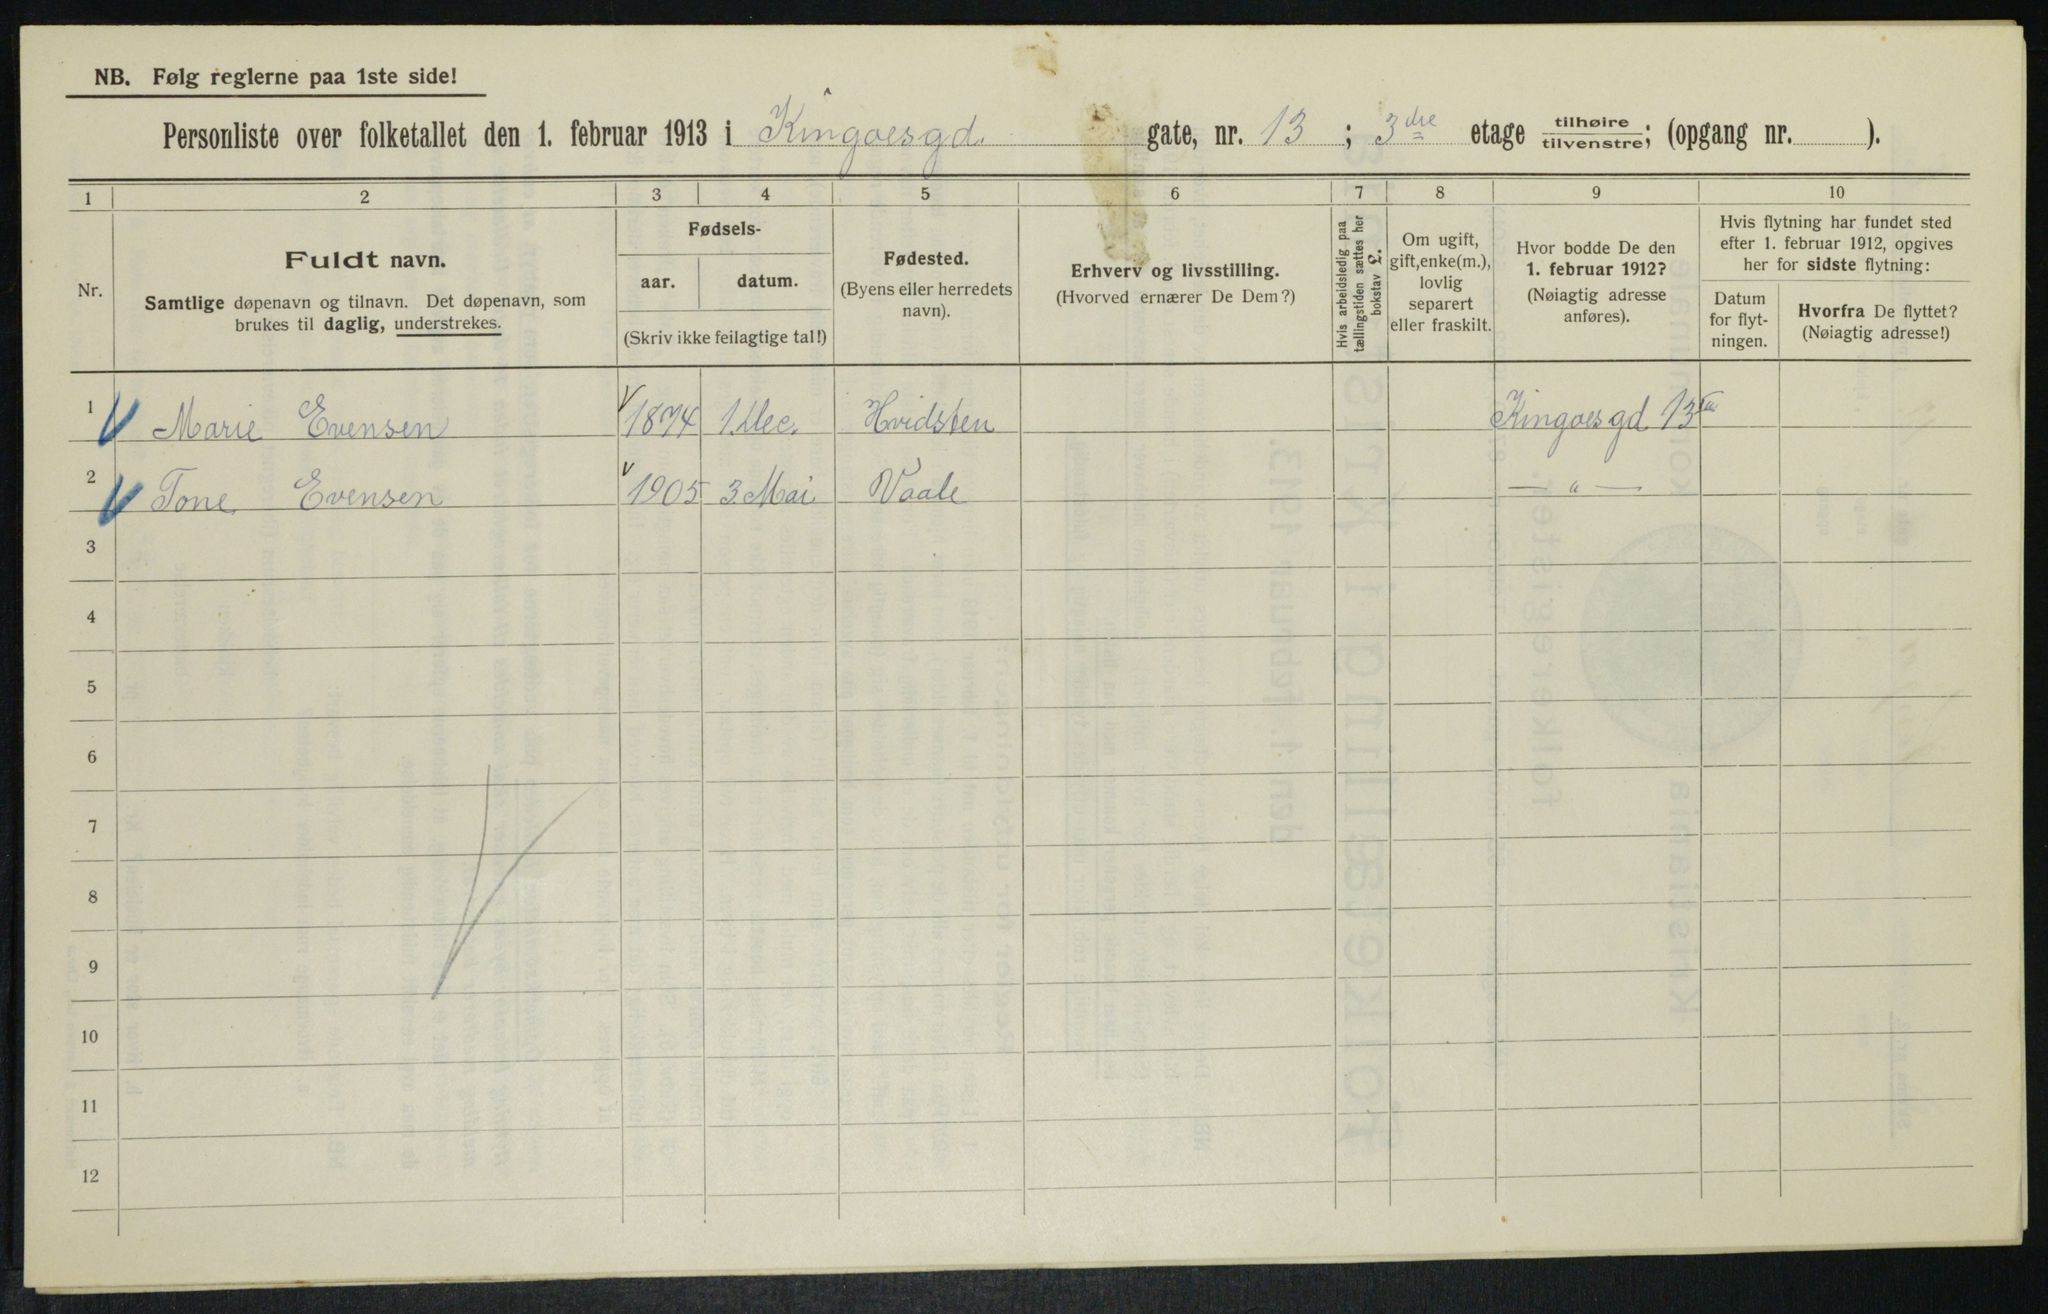 NB. Følg reglerne paa 1ste side!
Personliste over folketallet den 1. februar 1913 i Kingoesgd. gate, nr. 13 ; 3dre etage tilhøire tilvenstre; (opgang nr. ).
1 2 3 4 5 6 7 8 9 10
Nr.
Fuldt navn.
Samtlige døpenavn og tilnavn. Det døpenavn, som
brukes til daglig, understrekes.
Fødsels-
aar. datum.
(Skriv ikke feilagtige tal!)
Fødested.
(Byens eller herredets
navn).
Erhverv og livsstilling.
(Hvorved ernærer De Dem?)
Hvis arbeidsledig paa
tællingstiden sættes her
bokstav L.
Om ugift,
gift, enke(m.),
lovlig
separert
eller fraskilt.
Hvor bodde De den
1. februar 1912?
(Nøiagtig adresse
anføres).
Hvis flytning har fundet sted
efter 1. februar 1912, opgives
her for sidste flytning:
Datum
for flyt-
ningen.
Hvorfra De flyttet?
(Nøiagtig adresse!)
1 Marie Evensen 1874 1. Dec. Hvidsten Kingoesgd 13
2 Tone Evensen 1905 3. Mai Vaale — " —
3
4
5
6
7
8
9
10
11
12